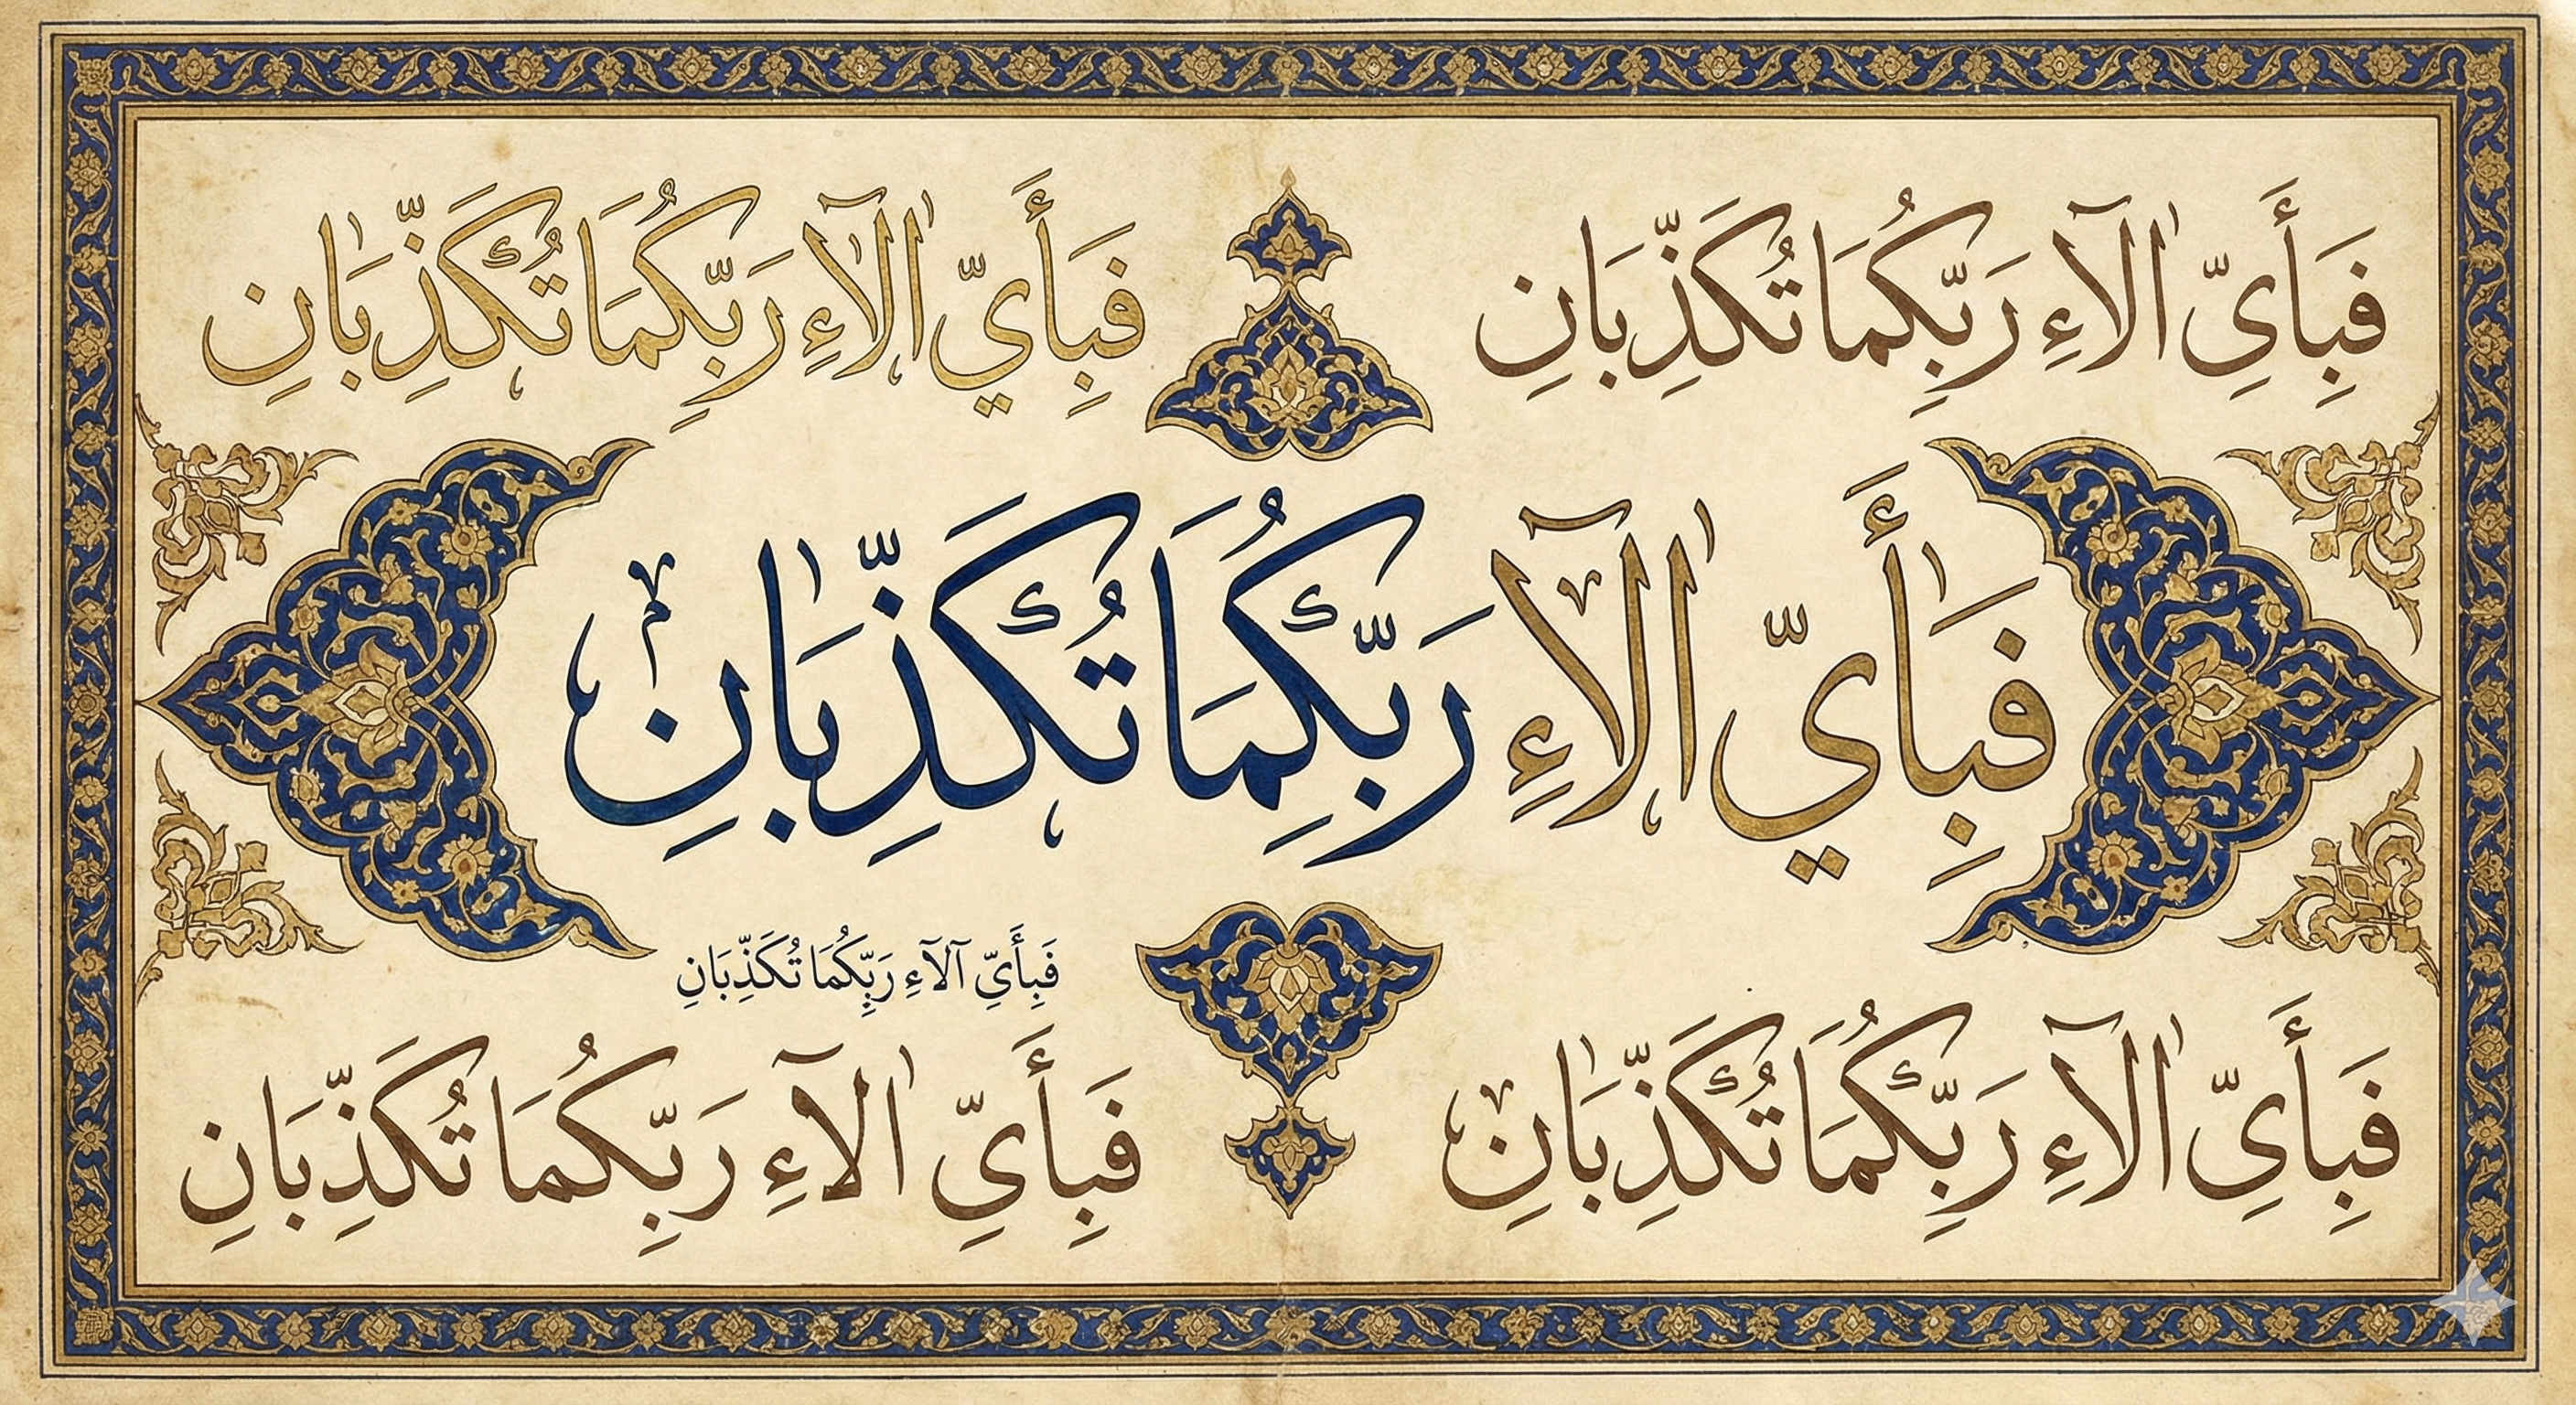 فَبِأَيِّ اٰلَآءِ رَبِّكُمَا تُكَذِّبَانِ
فَبِأَيِّ اٰلَآءِ رَبِّكُمَا تُكَذِّبَانِ
فَبِأَيِّ اٰلَآءِ رَبِّكُمَا تُكَذِّبَانِ
فَبِأَيِّ آلَآءِ رَبِّكُمَا تُكَذِّبَانِ
فَبِأَيِّ اٰلَآءِ رَبِّكُمَا تُكَذِّبَانِ
فَبِأَيِّ اٰلَآءِ رَبِّكُمَا تُكَذِّبَانِ